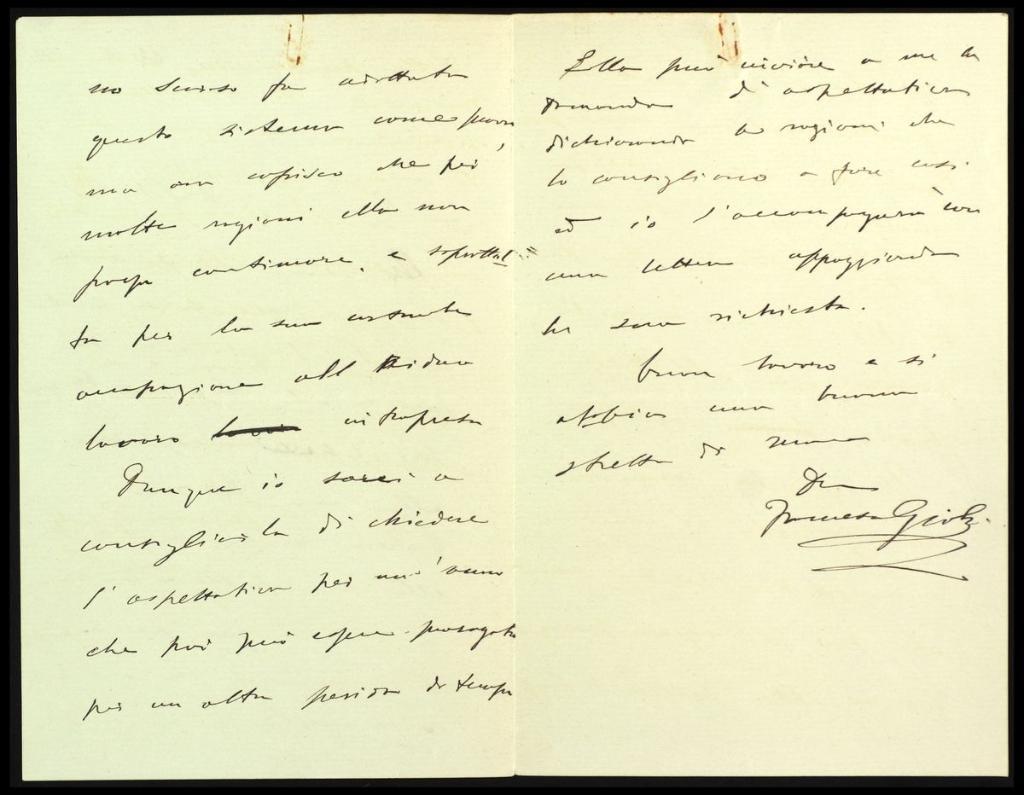 no scorso fu adottato
questo sistema come prova
ma ora capisco che per
molte ragioni ella non
possa continuare, e soprattut=
to per la sua costante
occupazione all' arduo
lavoro intrapreso
Dunque io sarei a
consigliarla di chiedere
l'aspettativa per un'anno
che poi può essere prorogata
per un altro periodo di tempo
Ella può inviare a me la
domanda d'aspettativa
dichiarando le ragioni che
lo consigliano a fare così
ed io l'accompagnerò con
una lettera appoggiando
la sua richiesta.
buon lavoro e si
abbia una buona
stretta di mano
Francesco Gioli